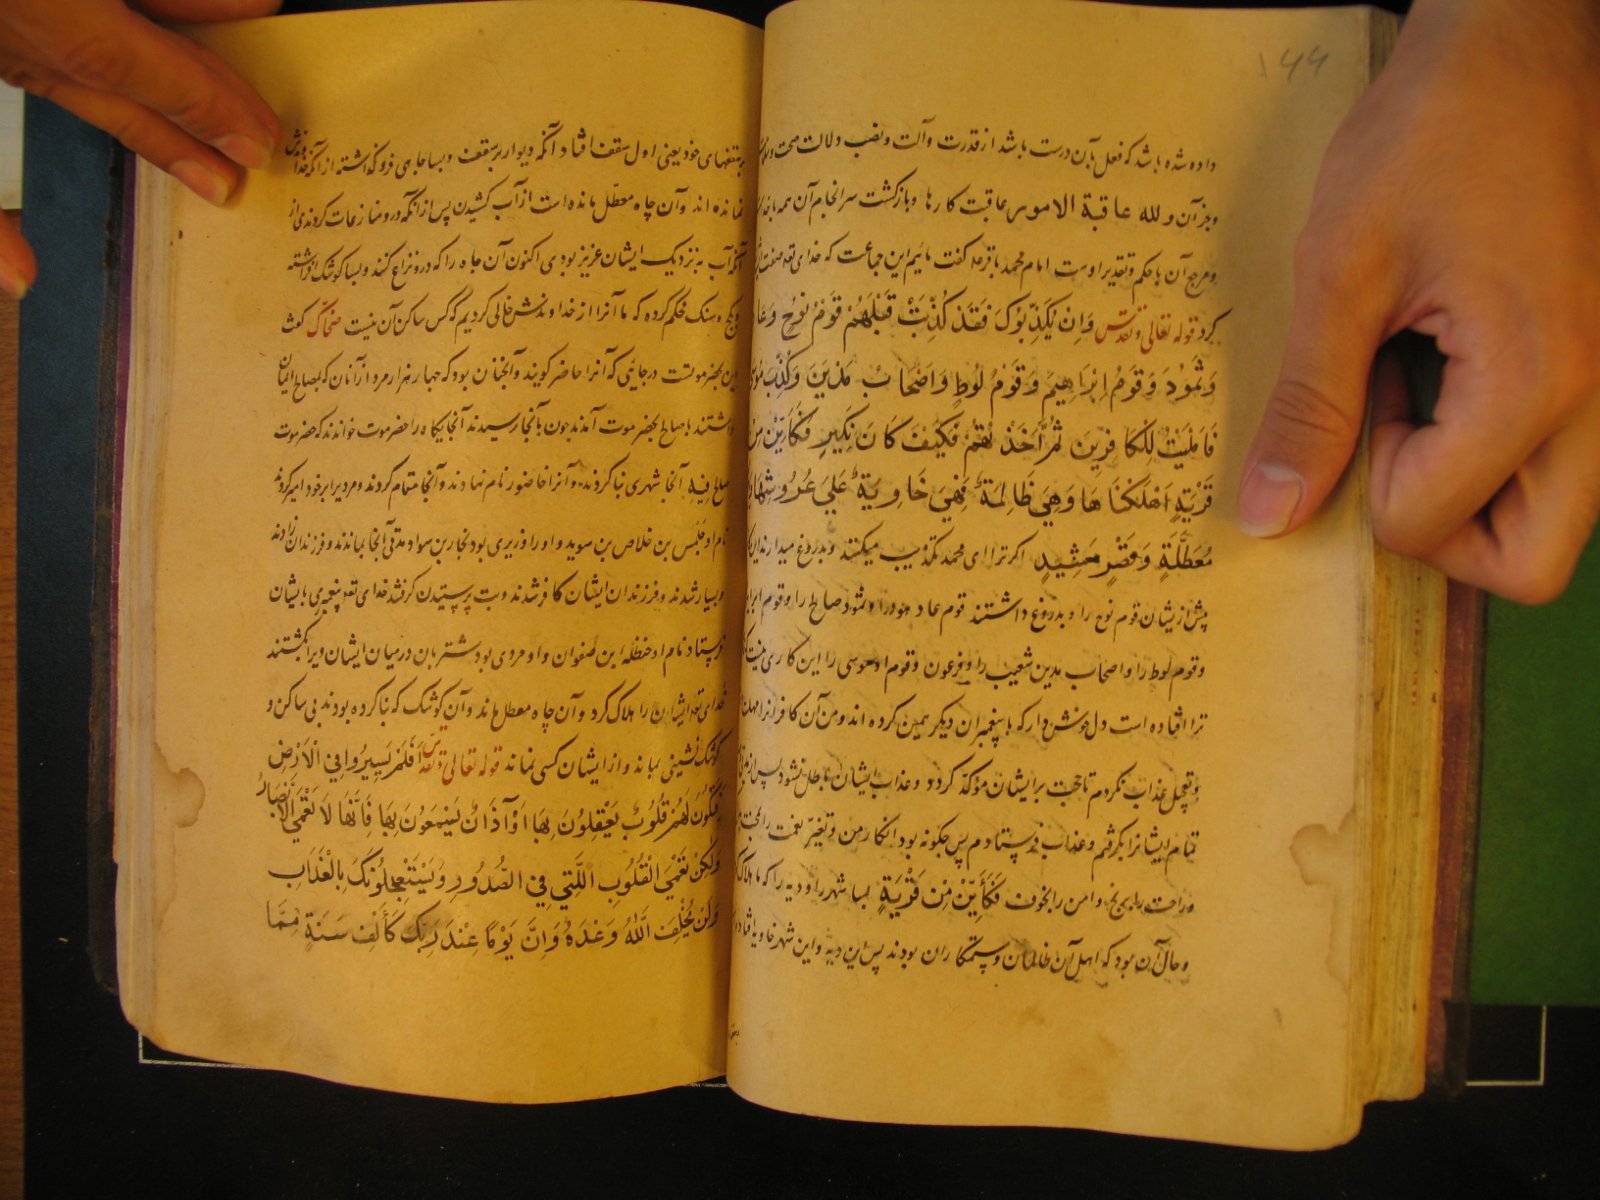 ۱۴۴
داده شده باشد که فعل بآن درست باشد از قدرت و آلت و نصب دلالت صحت
و جز آن ولله عاقبة الامور عاقبت کارها و بازگشت سرانجام آن همه با
و مرجع آن با حکم و تقدیر اوست امام محمد باقر ع گفت مائیم این جماعت که خدای تعه صفت
کرد قوله تعالی و تقدس وَاِن یُکَذِّبُوکَ فَقَد کُذِّبَتْ قَبْلَهُمْ قَوْمُ نُوحٍ وَعَا
وَثَمُودَ وَقَوْمُ اِبْرَاهِیمَ وَقَوْمُ لُوطٍ وَاَصْحَابُ مَدْیَنَ وَکُذِّبَ مُوسَی
فَاَمْلَیْتُ لِلْکَافِرِینَ ثُمَّ اَخَذْتُهُمْ فَکَیْفَ کَانَ نَکِیرِ فَکَاَیِّنْ مِنْ
قَرْیَةٍ اَهْلَکْنَاهَا وَهِیَ ظَالِمَةٌ فَهِیَ خَاوِیَةٌ عَلَی عُرُوشِهَا
مُعَطَّلَةٍ وَقَصْرٍ مَشِیدٍ اکر ترا ای محمد تکذیب میکنند و بدروغ میدارند
پیش از یشان قوم نوح را و بدروغ داشتند قوم عاد هود را و ثمود صالح را و قوم
و قوم لوط را و اصحاب مدین شعیب را و فرعون و قوم او موسی را این کاری نیست که
ترا افتاده است دل خوش دار که با پیغمبران دیکر همین کرده اند و من آن کافرانرا مهلت
و تعجیل عذاب نکردم تا حجت بر ایشان مؤکد کردد و عذاب ایشان باطل نشود پس از
تمام ایشانرا بکرفتم و عذاب فرستادم پس چکونه بود انکار من و تغییر نعمت را
و راحت را برنج و امن را بخوف فَکَاَیِّنْ مِنْ قَرْیَةٍ بسا شهر را و دیه را که ما هلاک
و حال آن بود که اهل آن ظالمان و ستمکاران بودند پس این دیه و این شهر خاویه افتاد
بر سقفهای خود یعنی اول سقف افتاد آنکه دیوار بر سقف و بسا چاهی فرو کذاشته از آنکه
نمانده اند و آن چاه معطل مانده است از آب کشیدن پس از آنکه درو منازعات کردندی از
آنکه آب به نزدیک ایشان عزیز بودی اکنون آن چاه را که درو نزاع کنند و بسا کوشک افراشته
و بکج و سنک محکم کرده که ما آنرا از خداوندش خالی کردیم که کس ساکن آن نیست ضحاک کفت
این بحضرموتست در جائی که آنرا حاضر کویند و آنچنان بود که چهار هزار مرد از آنان که بصالح ایمان
داشتند با صالح بحضرموت آمدند چون بآنجا رسیدند آنجایکاه را حضرموت خواندند که حضرموت
صالح فیه آنجا شهری بنا کردند و آنرا حاضور نام نهادند و آنجا مقام کردند و مردیرا بر خود امیر کردند
نام او جلس بن خلاص بن سوید و او را وزیری بود نجاربن سواد مدتی آنجا بماندند و فرزندان زادند
و بسیار شدند و فرزندان ایشان کافر شدند و بت پرستیدن کرفتند خدای تعه پیغمبری بایشان
فرستاد نام او حنظله ابن صفوان و او مردی بود شتربان در میان ایشان ویرا بکشتند
خدای تعه ایشان را هلاک کرد و آن چاه معطل ماند و آن کوشک که بنا کرده بودند بی ساکن و
کوشک نشینی بماند و از ایشان کسی نماند قوله تعالی و تقدس اَفَلَمْ یَسِیرُوا فِی الْاَرْضِ
فَتَکُونَ لَهُمْ قُلُوبٌ یَعْقِلُونَ بِهَا اَوْ آذَانٌ یَسْمَعُونَ بِهَا فَاِنَّهَا لَا تَعْمَی الْاَبْصَارُ
وَلَکِنْ تَعْمَی الْقُلُوبُ اللَّتِی فِی الصُّدُورِ وَیَسْتَعْجِلُونَکَ بِالْعَذَابِ
وَلَنْ یُخْلِفَ اللّٰهُ وَعْدَهُ وَاِنَّ یَوْمًا عِنْدَ رَبِّکَ کَاَلْفِ سَنَةٍ مِمَّا